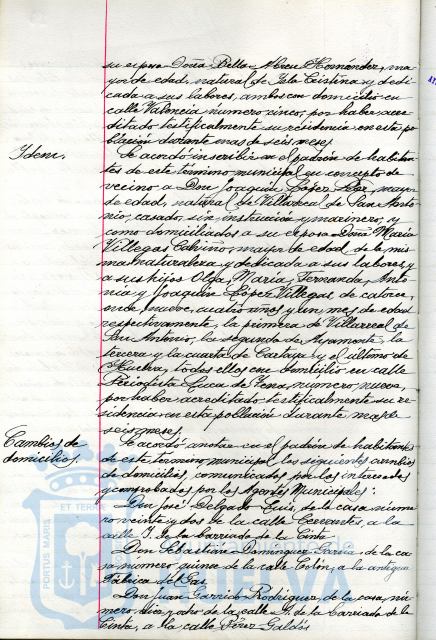 su esposa Doña Bella Abreu Hernández, ma-
yor de edad, natural de Isla Cristina y dedi-
cada a sus labores, ambos con domicilio en
calle Valencia número cinco, por haber acre-
ditado testificalmente su residencia en esta po-
blación durante mas de seis meses.
Idem.
Se acordó inscribir en el padrón de habitan-
tes de este término municipal en concepto de
vecino a Don Joaquín López mayor
de edad, natural de Villarreal de San Anto-
nio, casado, sin instrucción y marinero, y
como domiciliados a su esposa Doña María
Villegas mayor de edad de la mis-
ma naturaleza y dedicada a sus labores y
a sus hijos Olga, María, Fernanda, Anto-
nia y Joaquín López Villegas de catorce,
once, nueve, cuatro años y un mes de edad
respectivamente, la primera de Villarreal de
San Antonio, la segunda de Ayamonte, la
tercera y la cuarta de Cartaya y el último de
Huelva, todos ellos con domicilio en calle
Periodista Luca de Tena, número nueve,
por haber acreditado testificalmente su re-
sidencia en esta población durante mas de
seis meses.
Cambios de
domicilios.
Se acordó anotar en el padrón de habitantes
de este término municipal los siguientes cambios
de domicilios, comunicados por los interesados
y comprobados por los Agentes Municipales:
Don José Delgado Luis, de la casa núme-
ro veinte y dos de la calle Cervantes, a la
calle J. de la Barriada de la Cinta
Don Sebastián Domínguez García, de la ca-
sa número quince de la calle Colón, a la antigua
Fábrica del Gas.
Don Juan Garrido Rodríguez, de la casa, nú-
mero diez y ocho de la calle de la Barriada de la
Cinta, a la calle Pérez Galdós
PORTUS MARIS
ET TERRAE